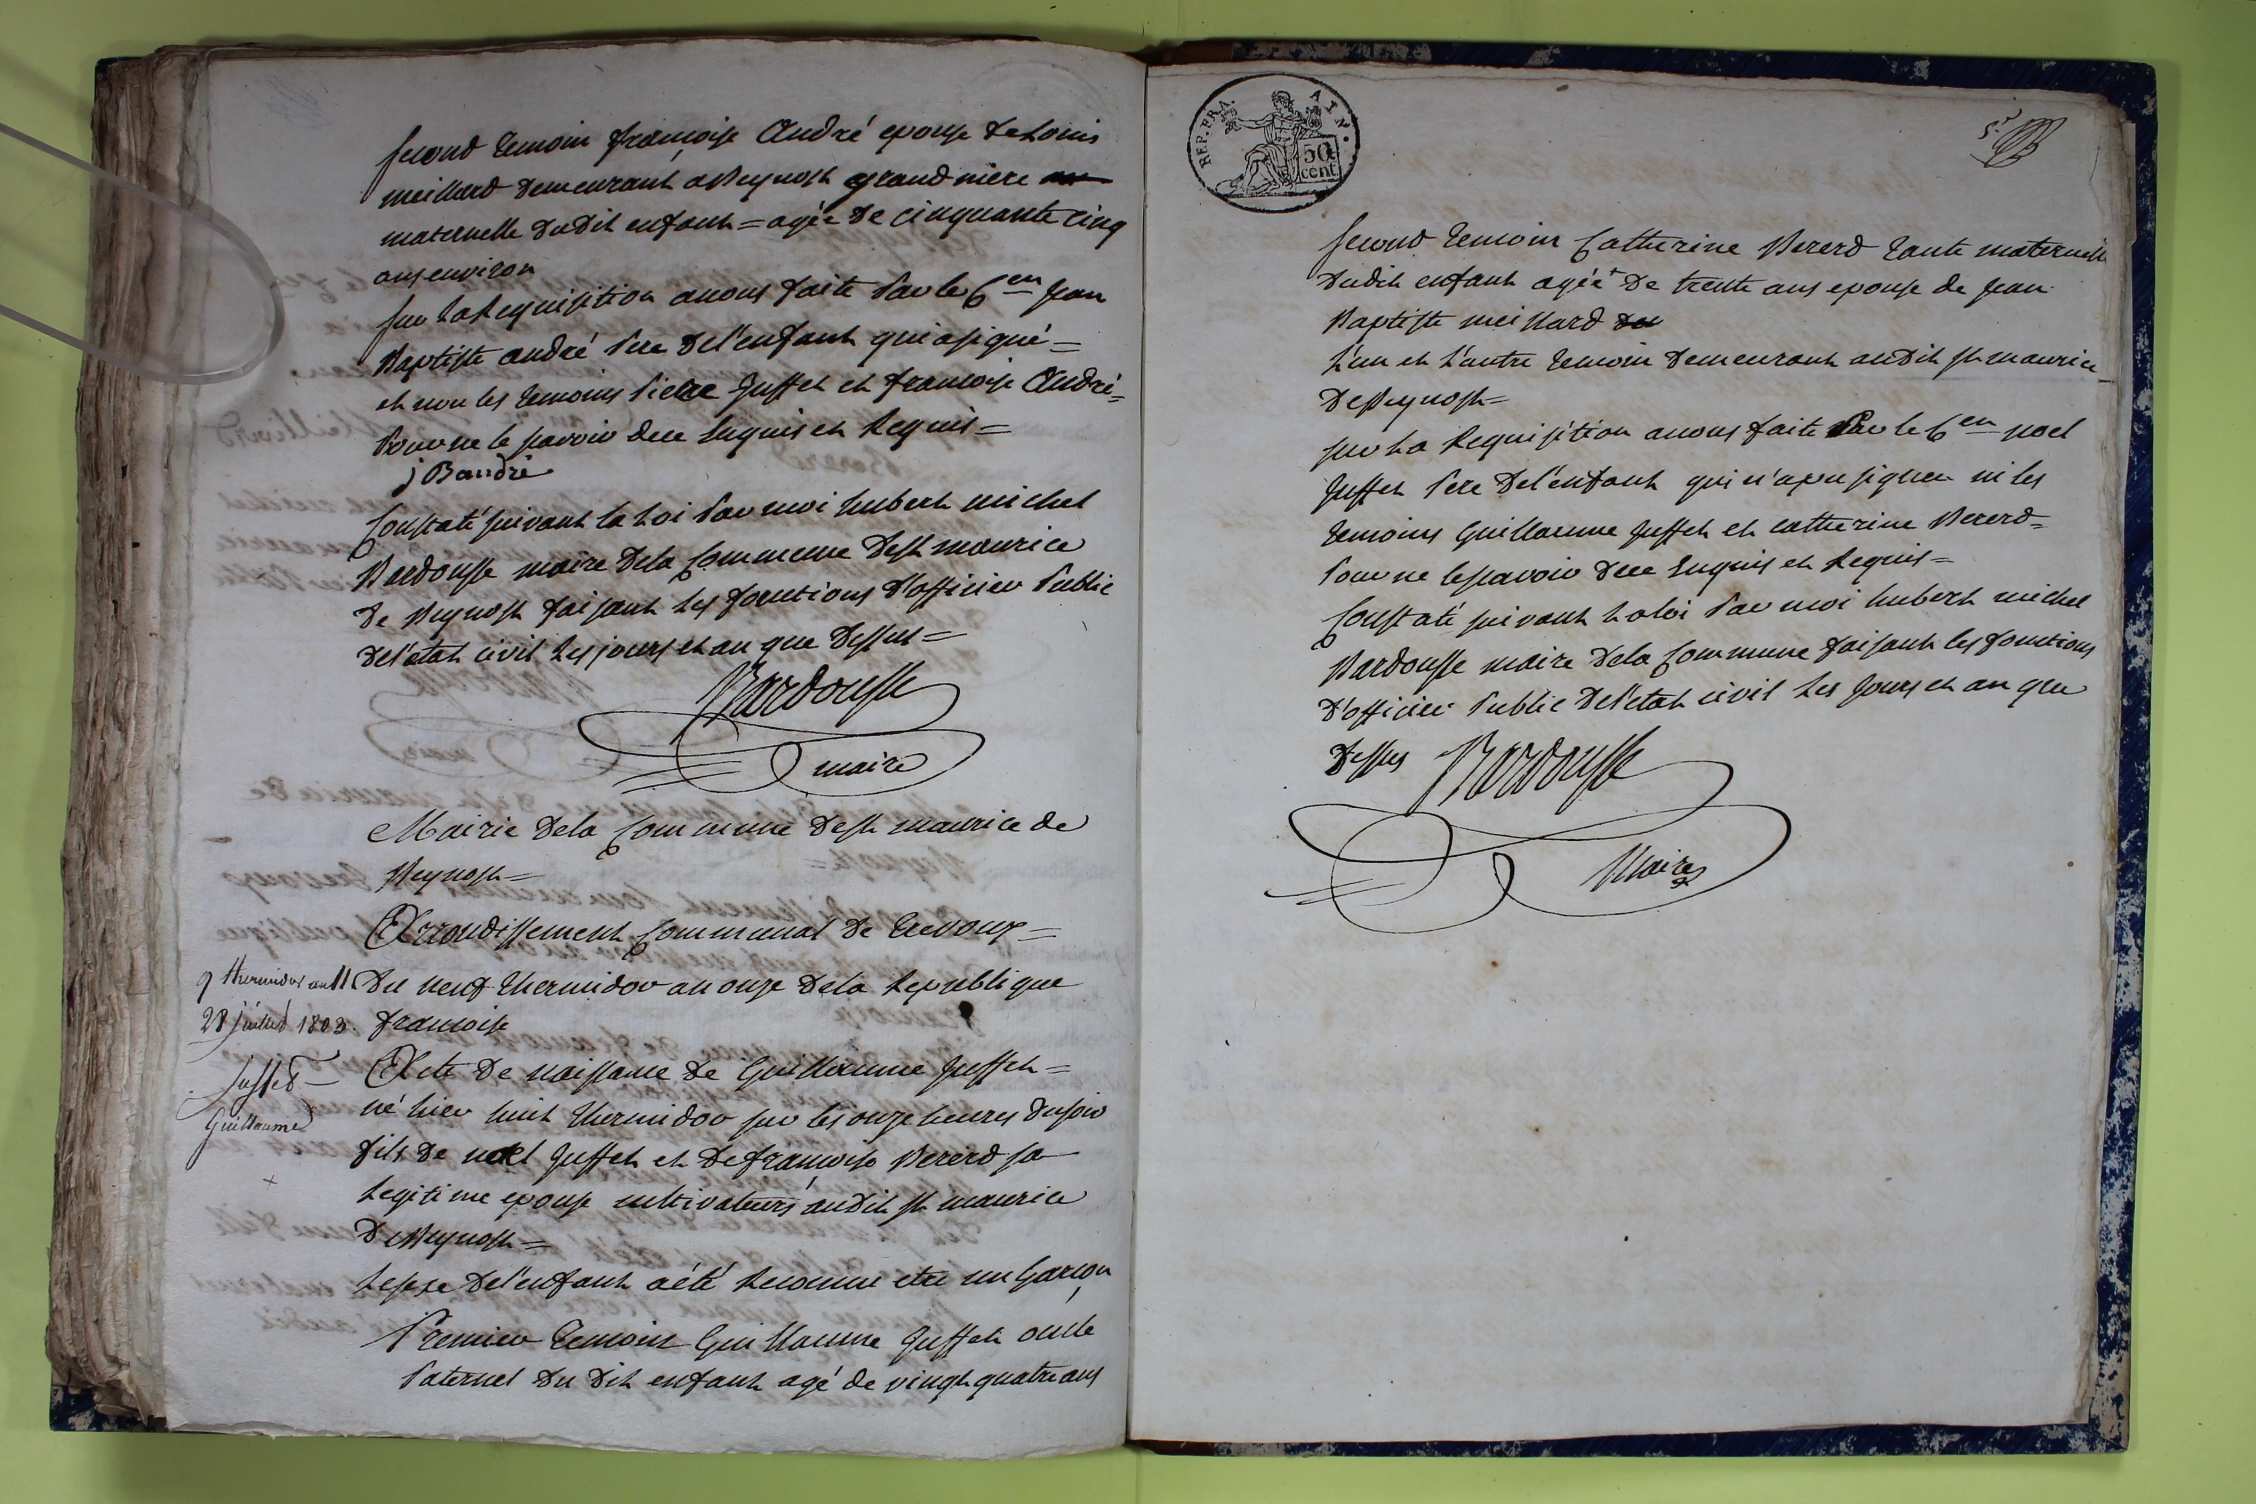 second temoin françoise André epouse de Louis
meillard demeurant a Beynost grand mere
maternelle dudit enfant = agée de cinquante cinq
ans environ
sur la Requisition a nous faite par le Cen jean
Baptiste andré Pere de l'enfant qui a signé =
et non les temoins Pierre Juffet et francoise André =
Pour ne le savoir de ce Enquis et Requis =
j B andré
Constaté suivant la Loi Par moi hubert michel
Bardousse maire de la Commune de St maurice
de Beynost faisant les fonctions d'officier Public
de l'état civil les jours et an que Dessus =
Bardousse
maire
Mairie de la Commune de St maurice de
Beynost =
Arrondissement Communal de Trevoux =
9 thermidor an 11
28 juillet 1803.
Du neuf thermidor an onze de la Republique
francoise
Juffet
Guillaume
Acte de naissance de Guillaume Juffet =
né hier huit thermidor sur les onze heures du soir
fils de noel Juffet et de françoise Bererd sa
Legitime epouse cultivateurs audit St maurice
de Beynost =
Le sexe de l'enfant a été Reconnu etre un Garçon
Premier temoin Guillaume Juffet oncle
Paternel du dit enfant agé de vingt quatre ans
REP. FRA.
AIN.
50
cent
second temoin Catherine Bererd tante maternelle
dudit enfant agée de trente ans epouse de jean
Baptiste meillard
L'un et L'autre temoin demeurant audit St maurice
de Beynost =
sur La Requisition a nous faite Par le Cen noel
Juffet Pere de l'enfant qui n'a pu signer ni les
temoins Guillaume Juffet et catherine Bererd =
Pour ne le savoir de ce Enquis et Requis =
Constaté suivant la loi Par moi hubert michel
Bardousse maire de la Commune faisant les fonctions
d'officier Public de l'etat civil les Jours et an que
Dessus
Bardousse
Maire